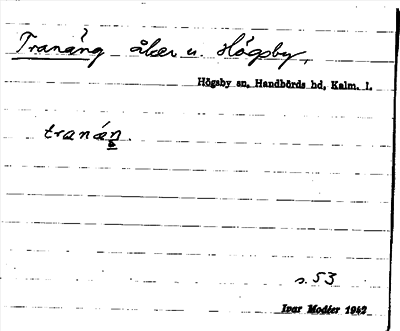 Tranäng åker u. Högsby,
Högsby sn, Handbörds hd, Kalm. l.
tranán.
s. 53
Ivar Modéer 1942